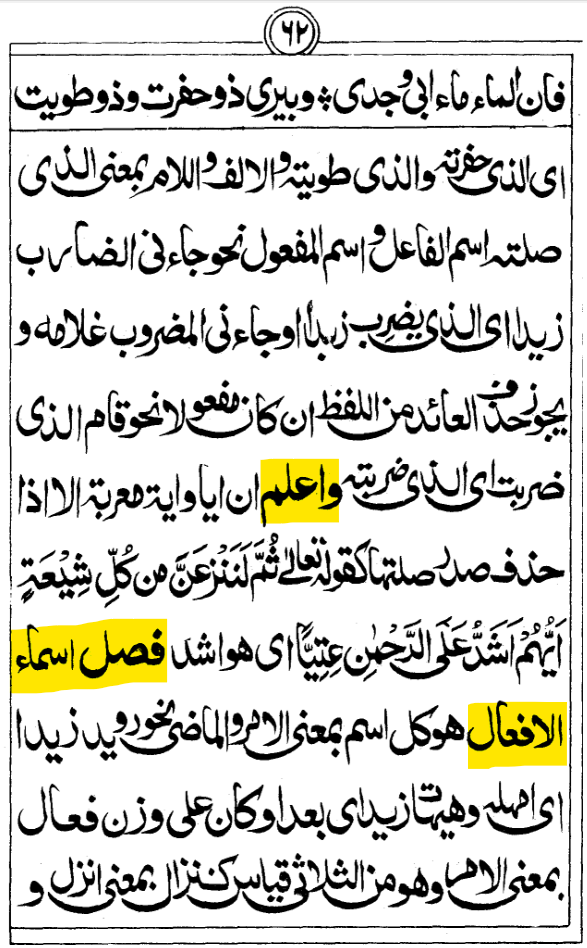 ٦٢
فان الماء ماء ابی وجدی ۞ وبیری ذو حفرت وذو طویت
ای الذی حفرتہ والذی طویتہ والالف واللام بمعنی الذی
صلتہ اسم الفاعل واسم المفعول نحو جاءنی الضارب
زیدا ای الذی یضرب زیدا او جاءنی المضروب غلامه و
یجوز حذف العائد من اللفظ ان کان مفعولا نحو قام الذی
ضربت ای الذی ضربتہ واعلم ان ایا وایۃ معربۃ الا اذا
حذف صدر صلتها کقولہ تعالےٰ ثُمَّ لَنَنْزِعَنَّ مِن کُلِّ شِیْعَةٍ
اَیُّهُمْ اَشَدُّ عَلَی الرَّحْمٰنِ عِتِیًّا ای هو اشد فصل اسماء
الافعال هو کل اسم بمعنی الامر والماضی نحو روید زیدا
ای امهلہ وهیهات زید ای بعد او کان علی وزن فعال
بمعنی الامر وهو من الثلاثی قیاس کنزال بمعنی انزل و